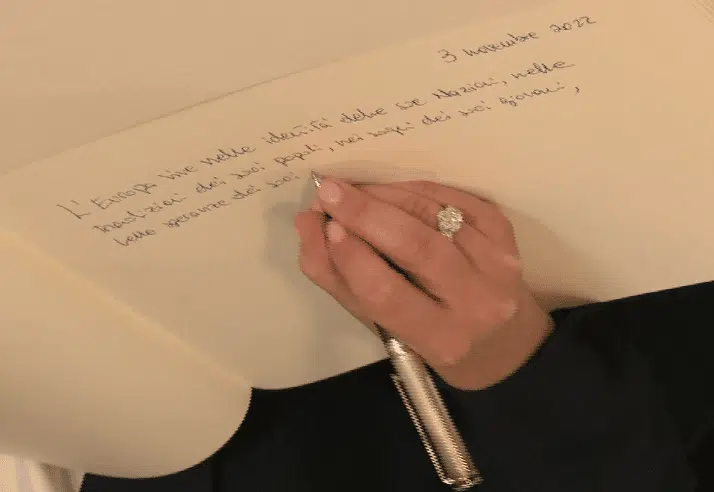 3 novembre 2022
L'Europa vive nelle identità delle sue Nazioni, nelle
tradizioni dei suoi popoli, nei sogni dei suoi giovani,
nelle speranze dei suoi